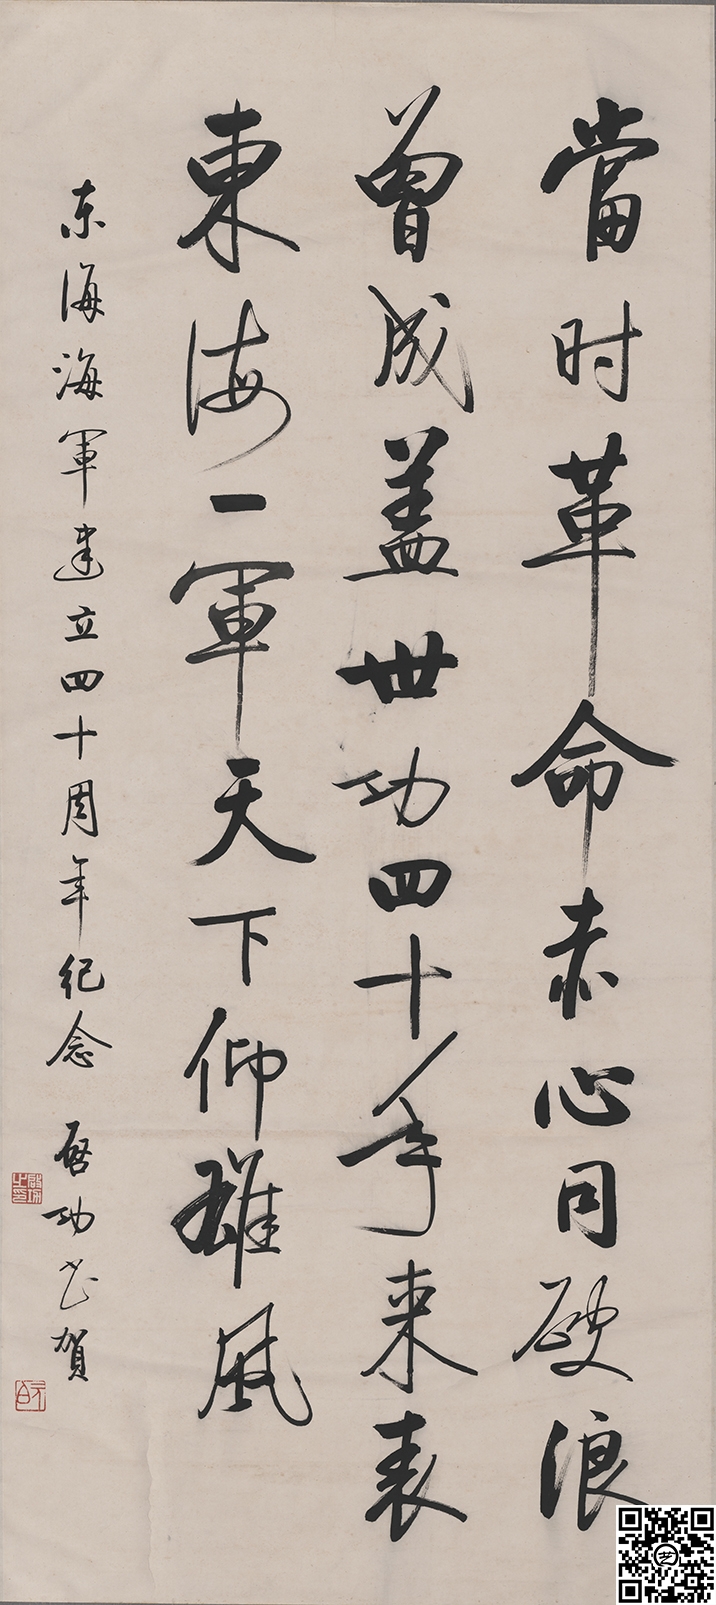 當时革命赤心同破浪
曾成盖世功四十年来表
東海一軍天下仰雄风
东海海軍建立四十周年纪念 启功书贺
启功之印
元白